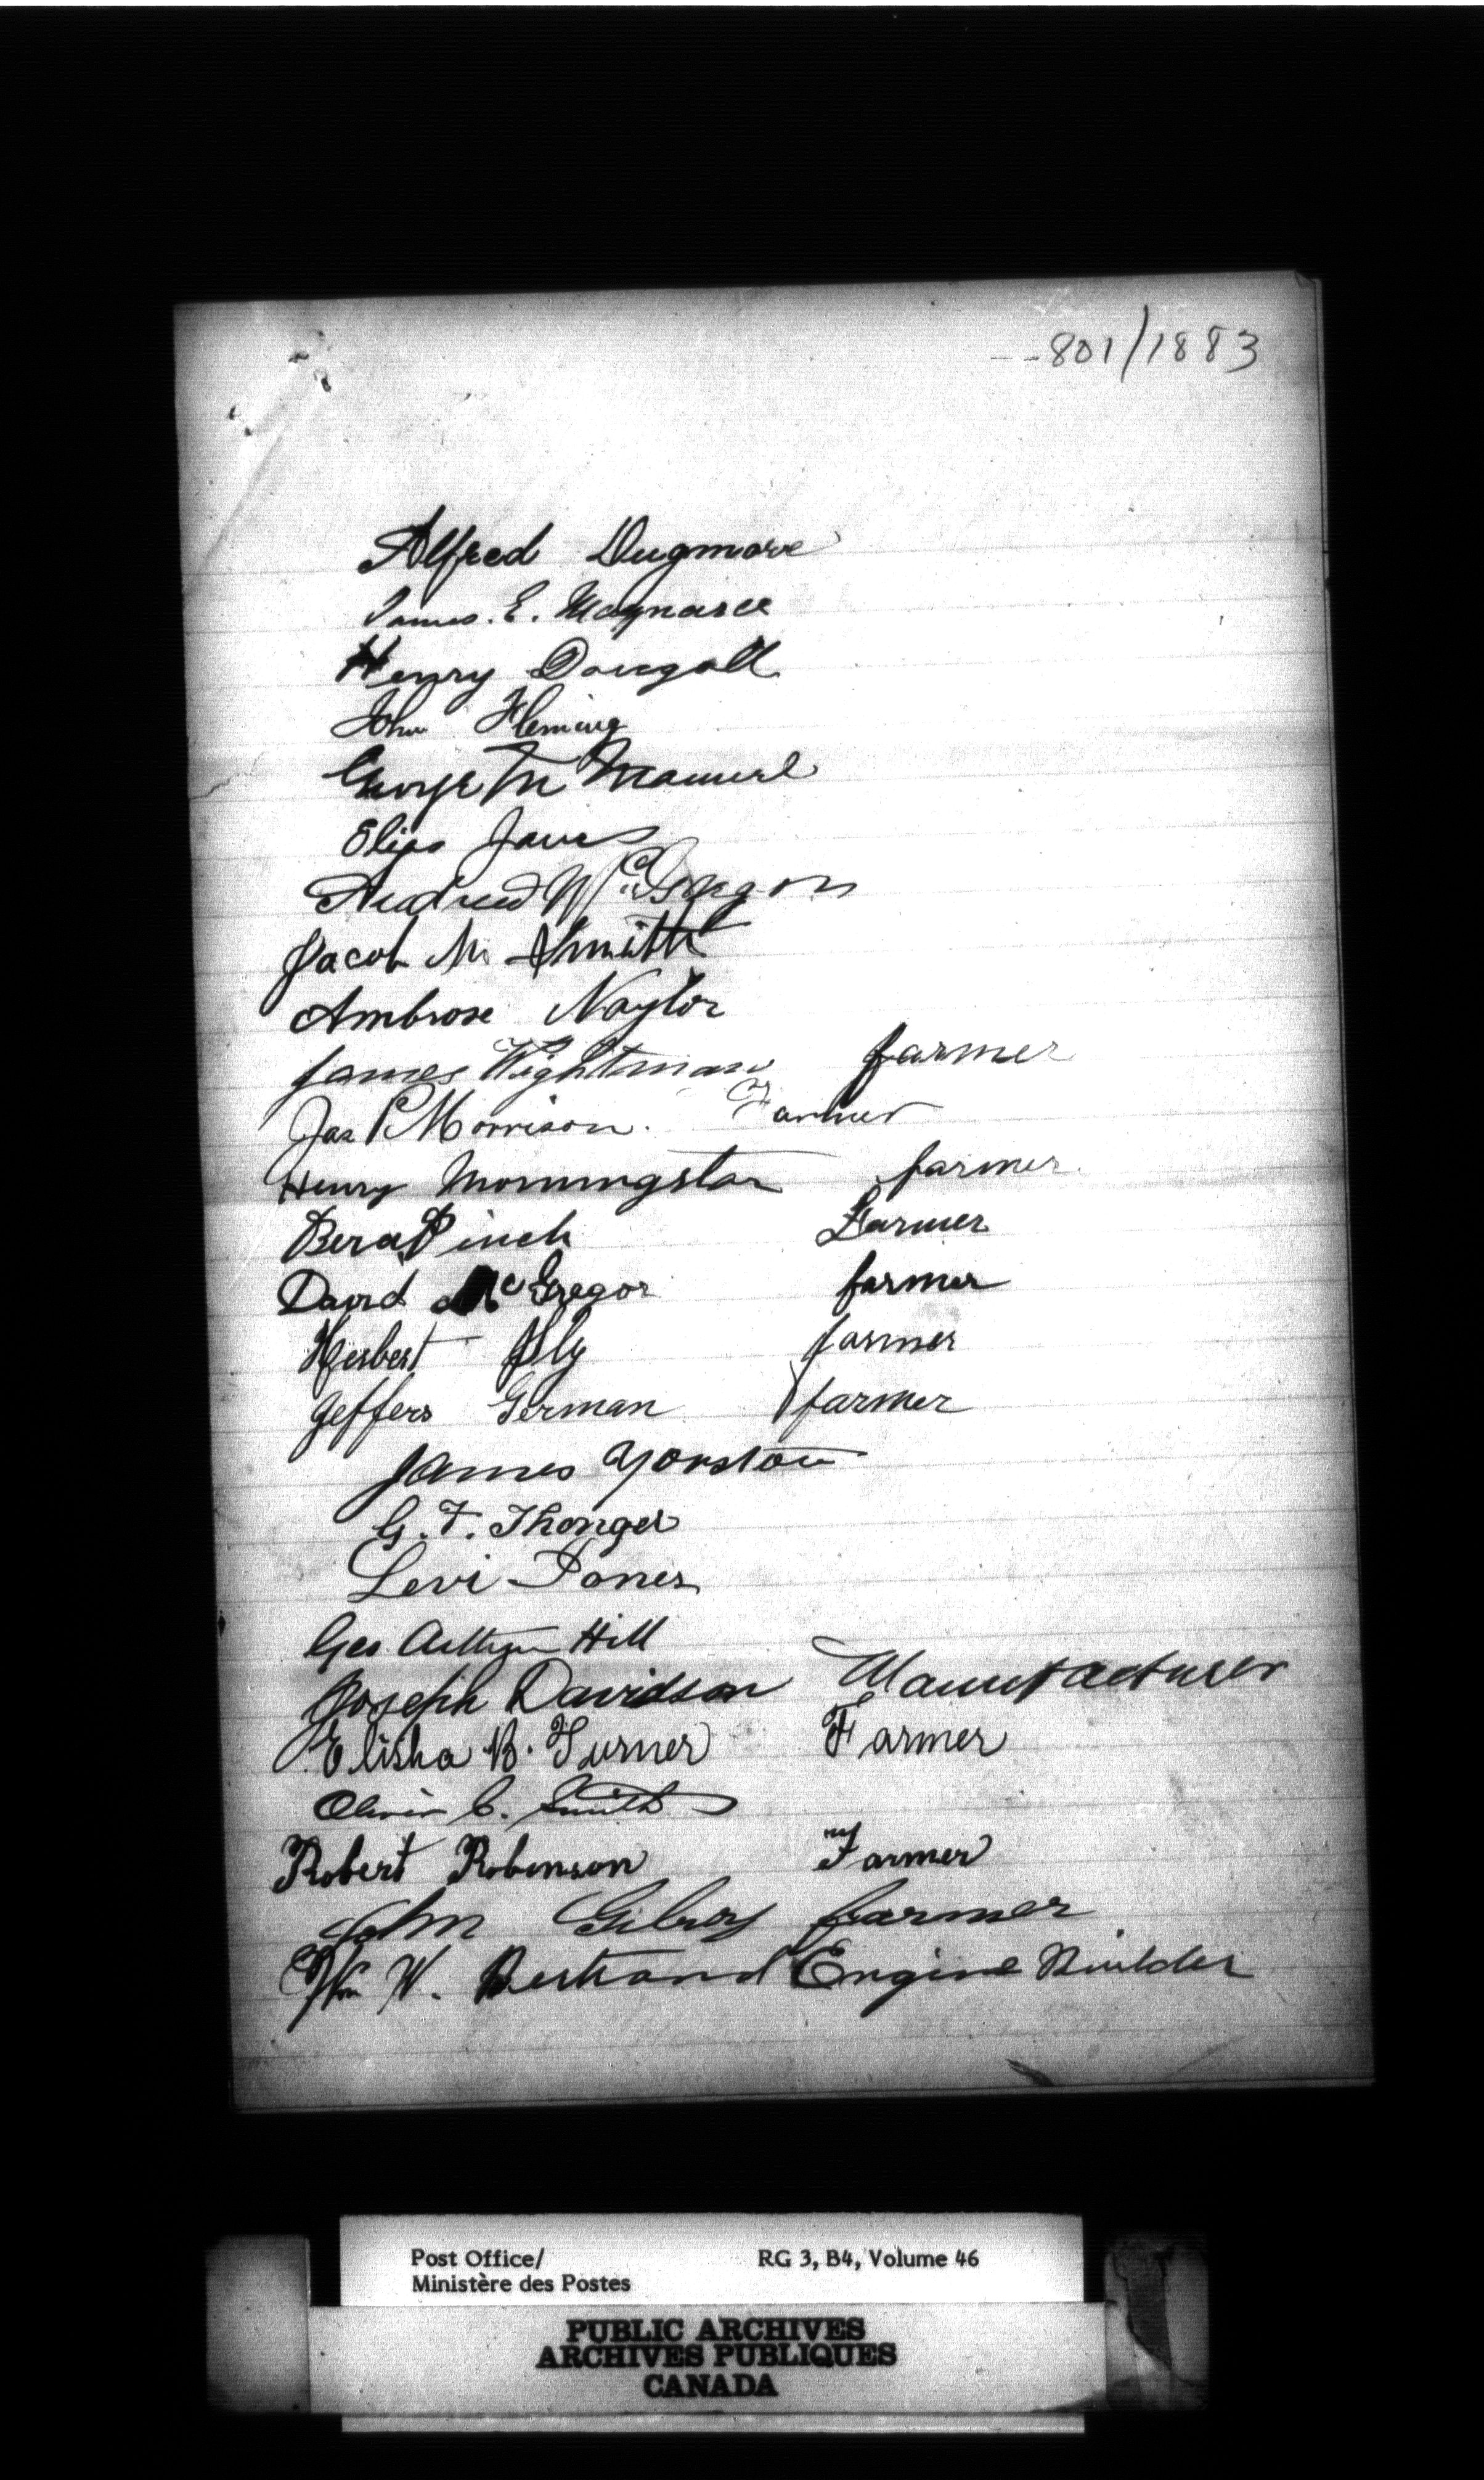 801/1883
Alfred Dugmore
James. E. Maynard
Henry Dougall
John Fleming
George M
Elijs
Andrew McGregor
Jacob M Smith
Ambrose Naylor
James Wightman farmer
Jas P Morrison. Farmer
Henry Morningstar farmer.
Pinch Farmer
David McGregor farmer
Herbert Sly farmer
Jeffers German farmer
James Yorston
G. F. Thonger
Levi Jones
Geo. Arthur Hill
Joseph Davidson Manufacturer
Elisha B. Turner Farmer
Oliver C. Smith
Robert Robinson Farmer
John farmer
Wm W. Bertrand Engine Builder
Post Office/ RG 3, B4, Volume 46
Ministère des Postes
PUBLIC ARCHIVES
ARCHIVES PUBLIQUES
CANADA